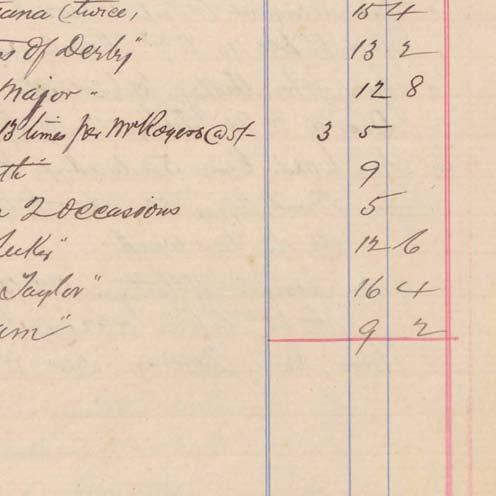 ana (twice, 15 4
s of Derby" 13 2
Major " 12 8
13 times per Mr Rogers @ 5/- 3 5
th" 9
2 occassions 5
" 12 6
Taylor" 16 4
am" 9 2